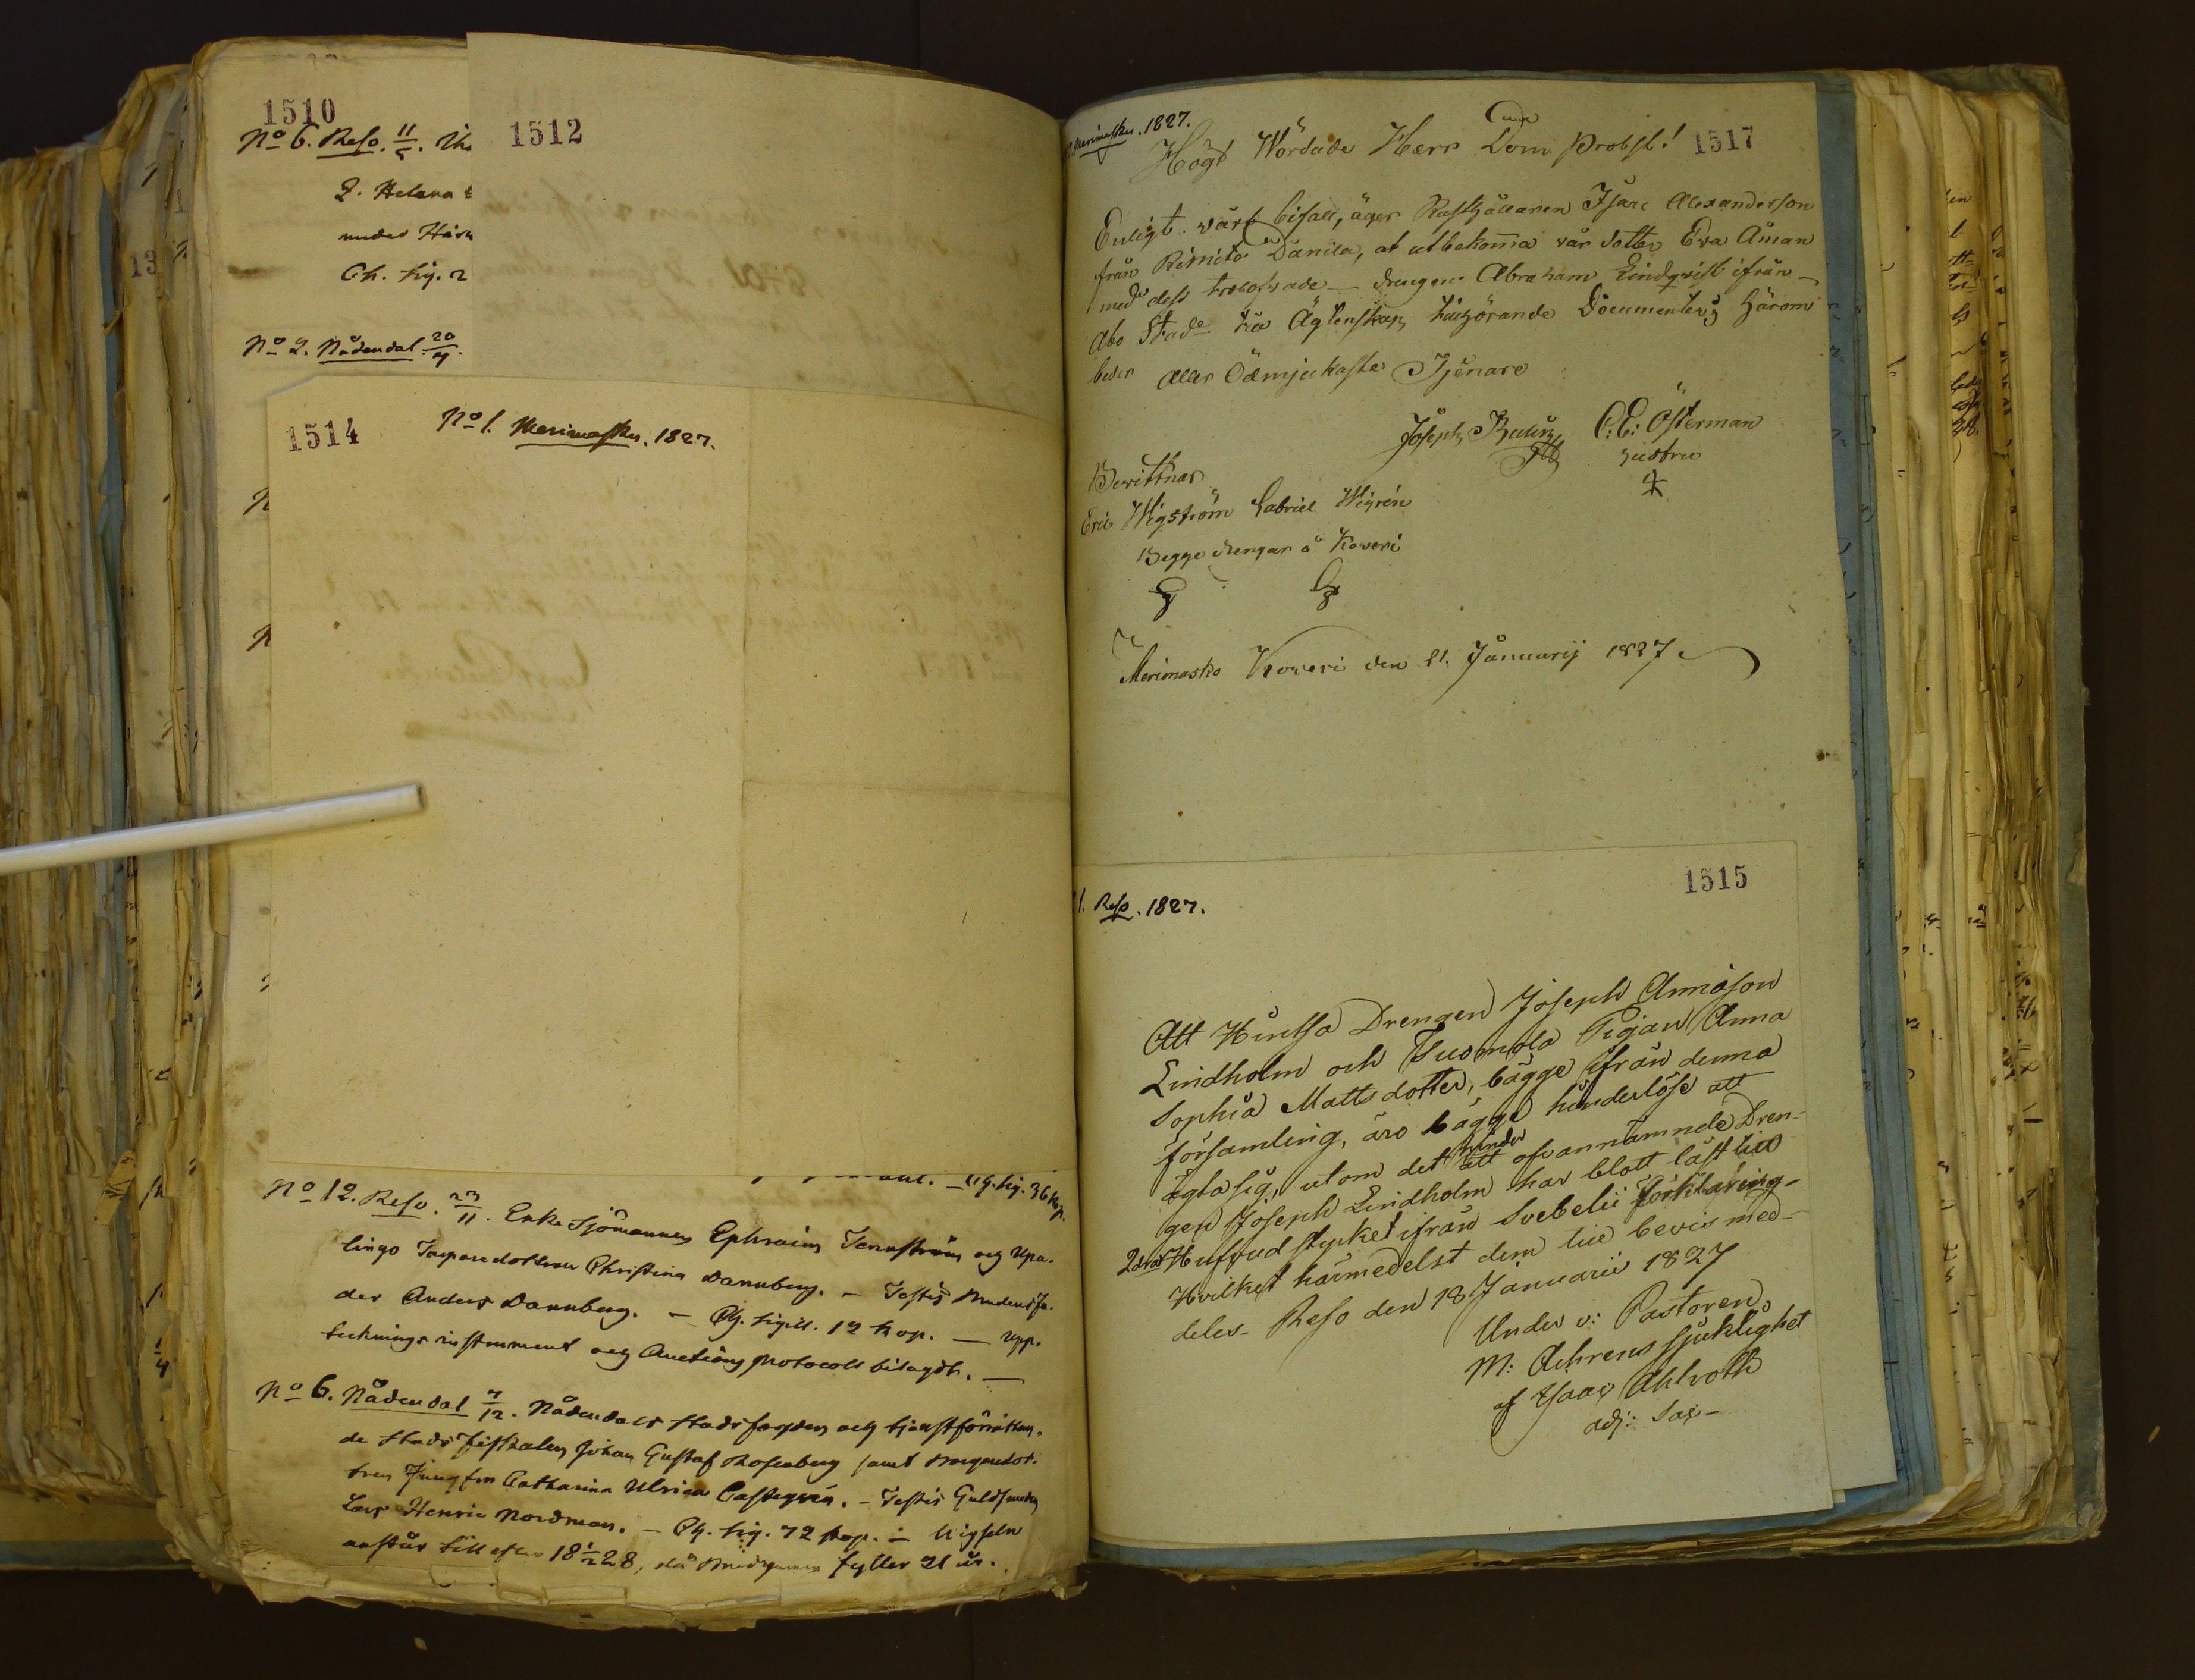 1510
No 6. Reso. 11/5.
L. Helena
under
Ch. sig. 2
No 2. Nådendal. 20/7.
1512
1514
No 1. Merimasku. 1827.
Ch. sig. 36 kop.
No 12. Reso. 23/11. Enkl. Sjömannen Ephraim Tennström och Upa-
lingo Torparedottren Christina Dannberg. – Testis Brudens Fa-
der Anders Dannberg. – Ch. sigill. 12 kop. – Upp-
teckningsinstrument och Auctions protocoll bilagdt. –
No 6. Nådendal 7/12. Nådendals Stadsfogden och tjenstförrättan-
de Stads Fiskalen Johan Gustaf Rosenberg samt Borgaredot-
tren Jungfru Catharina Ulrica Castegrén. – Testis Guldsmeden
Lars Henric Nordman. – Ch. sig. 72 kop. – Vigseln
anstår till efter 18 1/2 28, då Brudgummen fyller 21 år.
Merimasku. 1827.
Högt Wördade Herr Dom Probst!
1517
Enligt vårt bifall, äger Rusthållaren Isaac Alexanderson
från Rimito Dänila, at utbekomma vår dotter Eva Åman
med dess trolofvade – drengen Abraham Lindqvist ifrån –
Åbo Stad till Ägtenskap hörande Documenter; Härom
beder Aller Ödmjukaste Tjenare
Joseph C: E: Österman
hustru
Bevittnar
Eric Wigström Gabriel Wigrén
Begge drengar å Koveri
Merimasko Koveri den 21. Januarij 1827
1. Reso. 1827.
1515
Att Hintsa Drengen Joseph Annæson
Lindholm och Tuomola Pigan Anna
Sophia Matts dotter, bägge ifrån denna
församling, äro bägge hinderlöse att
ägta sig, utom det hinder att ofvannämnde Dren-
gen Joseph Lindholm har blott läst till
2dra Hufvud stycket ifrån Svebelii Förklaring –
Hvilket härmedelst dem till bevis med-
deles – Reso den 18 Januarii 1827
Under v: Pastoren
M: Achrens sjuklighet
af Isaac Ahlroth
adj: Sac –